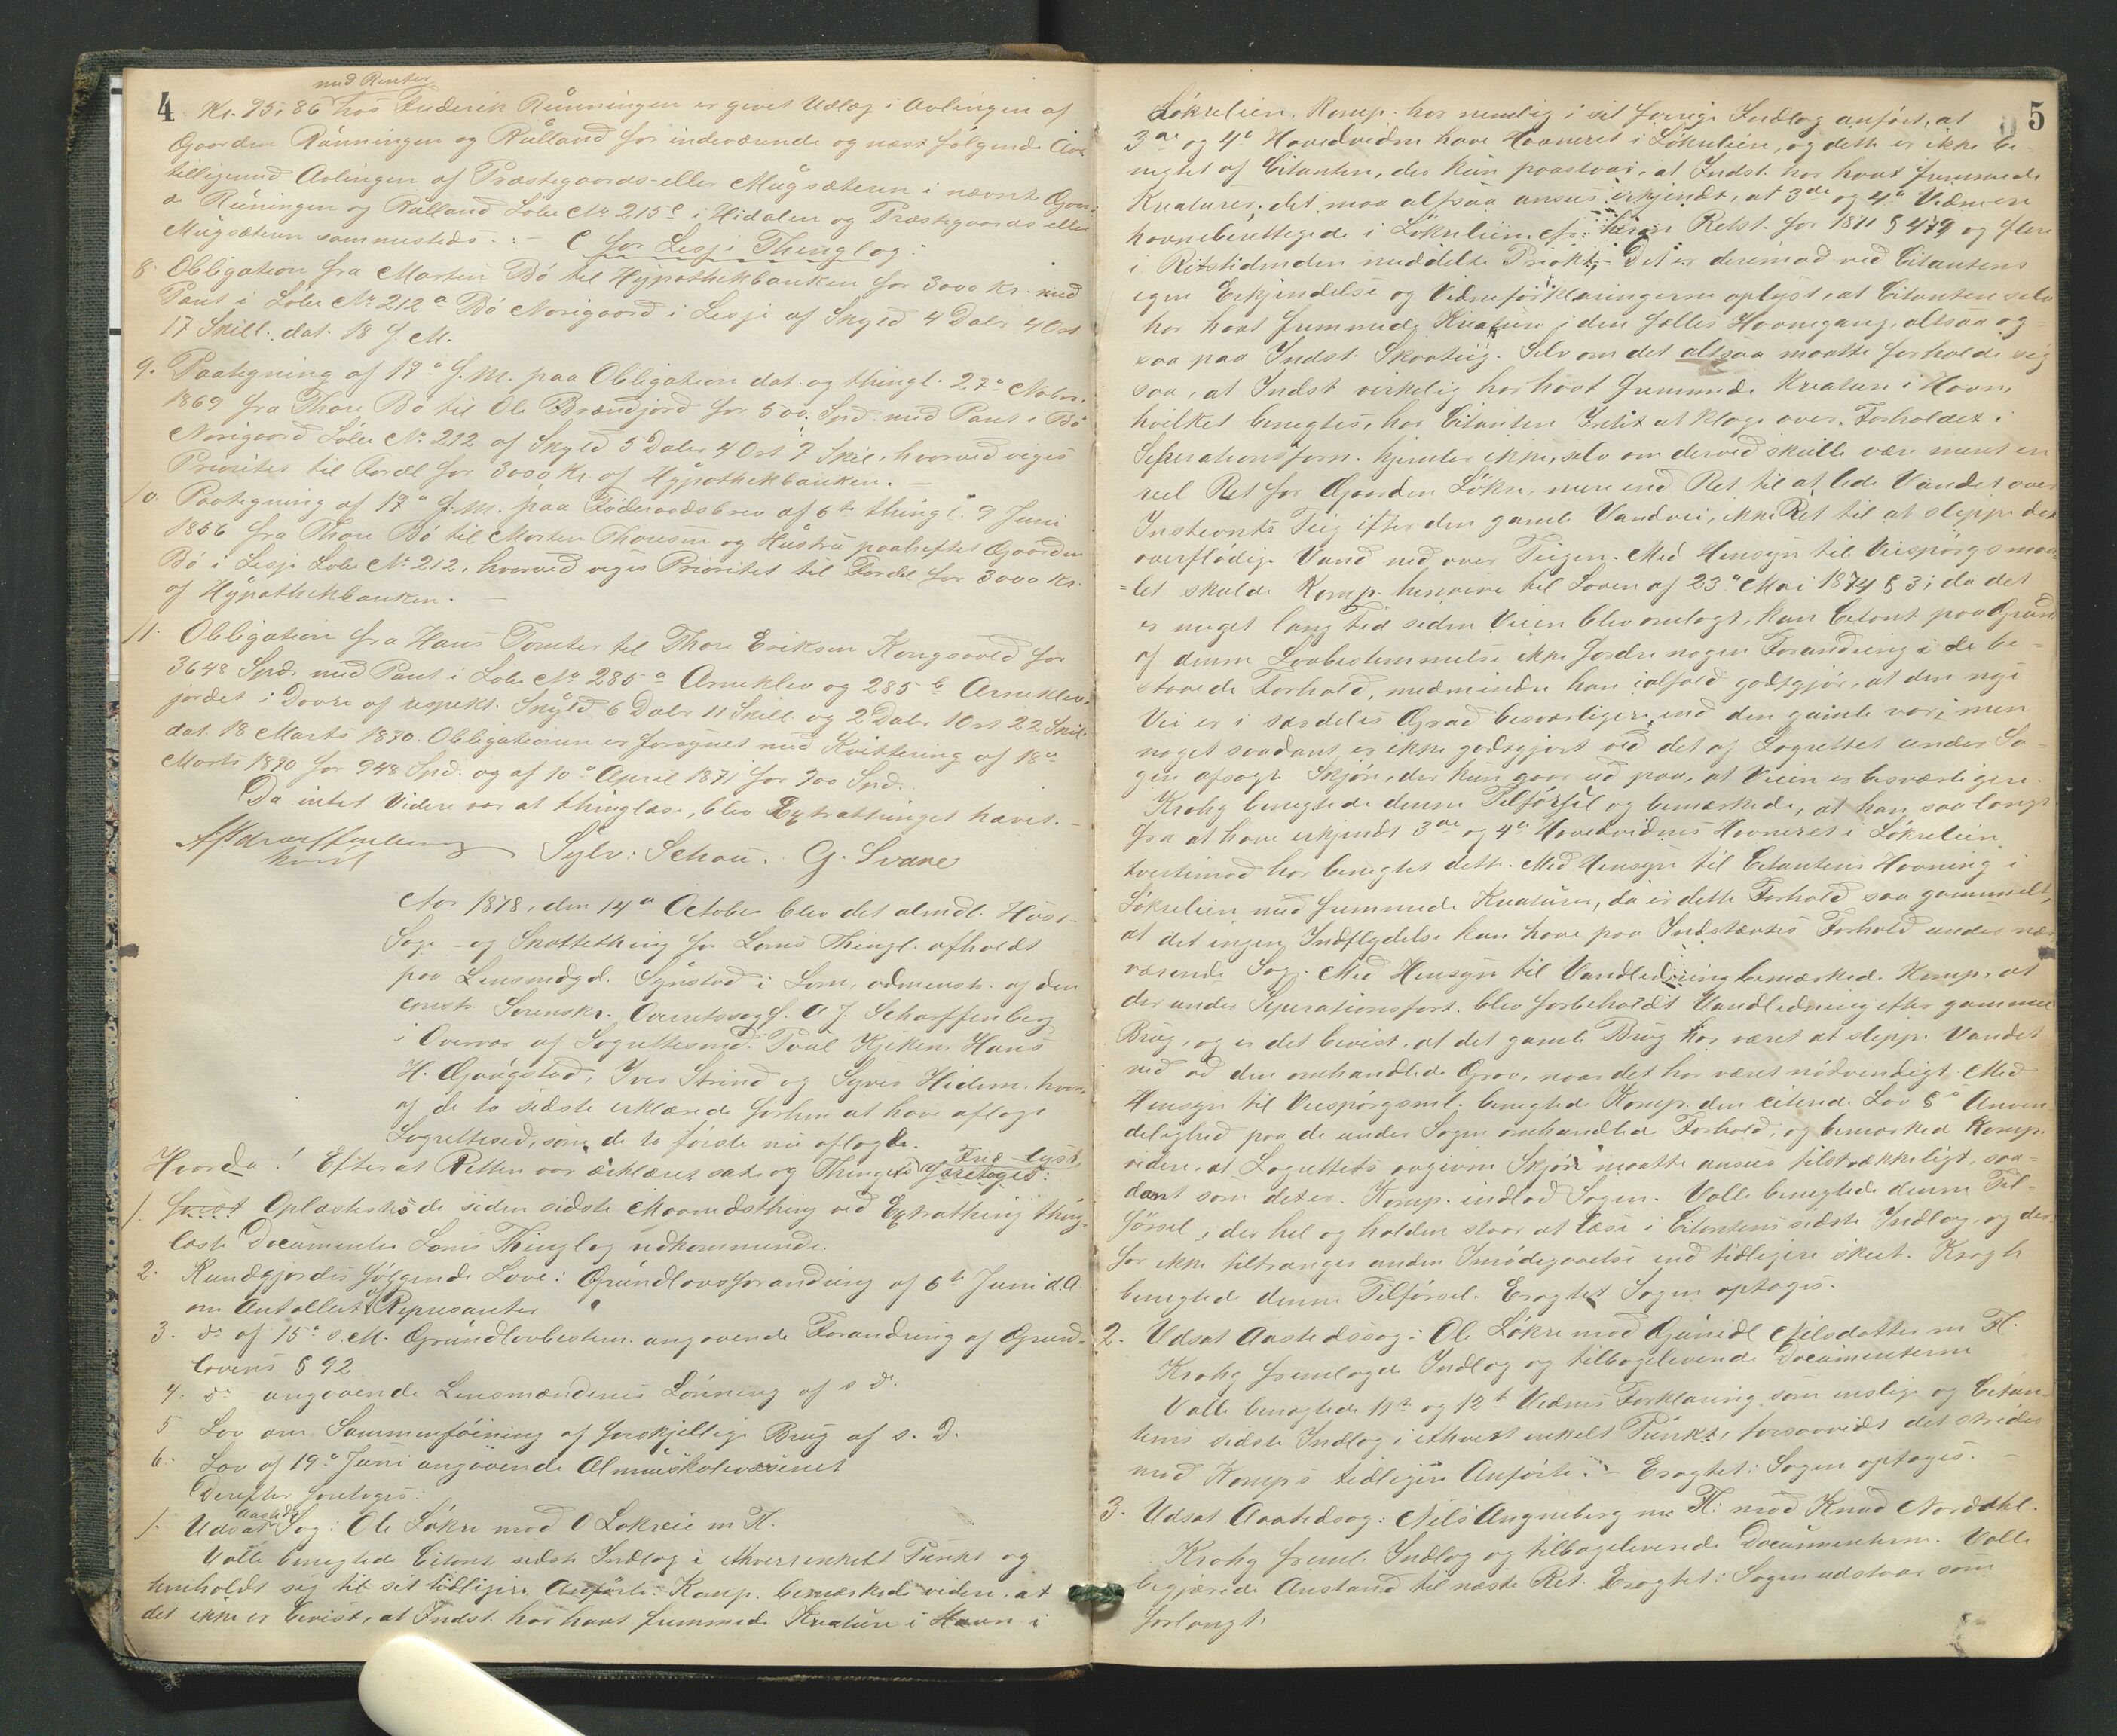 4
med Renter
Kr. 95,86 hos Frederik Rünningen er givet Udlæg i Avlingen af
Gaarden Rünningen og Rülland for indeværende og næst følgende Aar
tilligemed Avlingen af Præstegaards- eller Mügsæteren i nævnte Gaar-
de Rüningen og Rülland Løbe No 215 c i Hidalen og Præstegaards eller
Mügsæteren sammesteds. :- C for Lesje Thinglag:
8. Obligation fra Morten Bö til Hypothekbanken for 3000 Kr. med
Pant i Löbe No 212 a Bö Norigaard i Lesje af Skyld 4 Daler 4 Ort
17 Skill. dat. 18 f. M.
9. Paategning af 17 de f. M. paa Obligation dat. og thingl. 27 de Novbr.
1869 fra Thore Bö til Ole Brændjord for 500 Spd. med Pant i Bö
Norigaard Löbe No 212 af Skyld 5 Daler 4 Ort 7 Skil. hvorved viges
Prioritet til Fordel for 3000 Kr. af Hypothekbanken. -
10. Paategning af 17 de f. M. paa Föderaadsbrev af 6te thingl. 9 Juni
1856 fra Thore Bö til Morten Thoresen og Hustrü paaheftet Gaarden
Bö i Lesje Löbe No 212, hvorved viges Prioritet til Fordel for 3000 Kr.
af Hypothekbanken. -
11. Obligation fra Hans Tofte til Thore Eriksen Kongsvold for
3648 Spd. med Pant i Løbe No 285 a Arneklev og 285 b Arneklev-
jordet i Dovre af respekt. Skyld 6 Daler 11 Skill. og 2 Daler 1 Ort 22 Skil.
dat. 18 Marts 1870. Obligationen er forsynet med Kvittering af 18 de
Marts 1870 for 948 Spd. og af 10 de April 1871 for 700 Spd.
Da intet Videre var at thinglæse, blev Extrathinget hævet. -
A Scharffenberg
konst Sylv: Schou. G. Svare
Aar 1878, den 14 de October blev det almdl. Høst-
Sage- og Skattething for Loms Thingl. afholdt
paa Lensmdgd. Synstad i Lom, administr. af den
const. Sorenskr. Overretssagf. A J. Scharffenberg
i Overvær af Lagrettesmd. Paal Kjiken, Hans
H. Gaügstad, Iver Strind og Syver Hidem, hvor-
af de to sidste erklærede forhen at have aflagt
Lagrettesed, som de to første nü aflagde.
Hvorda! Efterat Retten var erklæret sat og Thinget Fred lyst, foretoges:
1. först Oplæstes de siden sidste Maanedsthing ved Extrathing thing-
læste Documenter Loms Thinglag vedkommende.
2. Kundgjordes følgende Love: Grundlovsforandring af 6te Juni d. A.
om Antallet af Repræsanter
3. do af 15de s. M. Grundlovbestem. angaaende Forandring af Grund-
lovens § 92
4. do angaaende Lensmændenes Lönning af s D.
5 Lov om Sammenföining af forskjellige Brüg af s. D.
6. Lov af 19 de Juni angaaende Almueskolevæsenet
Derefter foretoges:
1. Udsat Aasteds Sag: Ole Løkre mod O Lokreie m Fl.
Valle benegtede Citant. sidste Indlæg i ethvert enkelt Punkt og
henholdt sig til sit tidligere Anførte. Komp. bemærkede videre, at
det ikke er bevist, at Indst. har havt fremmede Kreature i Havn i
5
Løkrelien. Komp. har nemlig i sit forrige Indlæg anført, at
3die og 4de Hovedvidne have Havneret i Løkrelien, og dette er ikke be-
negtet af Citanten, der kün paastaar, at Indst. har havt fremmede
Kreaturer; det maa altsaa ansees erkjendt, at 3die og 4de Vidne ere
havneberettigede i Løkrelien cfr. herom Retst. for 1871 § 479 og flere
i Retstidenden meddelte Præk; - Det er derimod ved Citantens
egen Erkjendelse og Vidneforklaringerne oplyst, at Citanten selv
har havt fremmede Kreature i den fælles Havnegang, altsaa og-
saa paa Indst. Skovteig. Selv om det altsaa maatte forholde sig
saa, at Indst virkelig har havt fremmede Kreature i Havn,
hvilket benegtes, har Citanten Intet at klage over. Forholdet i
Seperationsforn. hjemler ikke, selv om derved skulle være ment en
reel Ret for Gaarden Løkre, mere end Ret til at lede Vandet over
Instevnte Teig efter den gamle Vandvei, ikke Ret til at sleppe det
overflødige Vand ned over Teigen. Med Hensyn til Veispørgsmaa-
let skulde Komp. henvise til Loven af 23 de Mai 1874 § 3; da det
er meget lang Tid siden Veien blev omlagt, kan Citant. paa Grund
af denne Lovbestemmelse ikke fordre nogen Forandring i de be-
staaede Forhold, medmindre han ialfald godtgjør, at den nye
Vei er i særdeles Grad besværligere, end den gamle var; men
noget saadant er ikke godtgjort ved det af Lagrettet under Sa-
gen afsagte Skjøn, der kün gaar ud paa, at Veien er besværligere.
Krohg benegtede denne Tilførsel og bemærkede, at han, saa langt
fra at have erkjendt 3die og 4de Hovedvidnes Havneret i Løkrelien,
tvertimod har benegtet dette. Med Hensyn til Citantens Havning i
Løkrelien med fremmede Kreaturer, da er dette Forhold saa gammelt,
at det ingen Indflydelse kan have paa Indstævntes Forhold under nær-
værende Sag. Med Hensyn til Vandledning bemærkede Komp. at
der under Seperationsforr. blev forbeholdt Vandledning efter gammel
Brüg, og er det bevist, at det gamle Brüg har været at sleppe Vandet
ned ad den omhandlede Grav, naar det har været nødvendigt. Med
Hensyn til Veispørgsml. benegtede Komp. den citerede Lov §s Anven-
delighed paa de under Sagen omhandlede Forhold, og bemærked Komp.
videre, at Lagrettets avgivne Skjön maatte ansees tilstrækkeligt, saa-
dant som det er. Komp. indlod Sagen. Valle benegtede denne Til-
førsel, der hel og holden staar at læse i Citantens sidste Indlæg, og der-
for ikke tiltrænger anden Imødegaaelse end tidligere skeet. Krogh
benegtede denne Tilførsel. Eragtet Sagen optages.
2. Udsat Aastedssag: Ole Løkre mod Günild Nilsdatter m Fl.
Krohg fremlagde Indlæg og tilbageleverede Documenterne
Valle benegtede 11te og 12te Vidnes Forklaring som uenslige og Citan-
tens sidste Indlæg i ethvert enkelt Punkt, forsaavidt det strider
mod Komps tidligere Anførte. - Eragtet: Sagen optages. -
3. Udsat Aastedsag: Nils Angneberg m Fl: mod Knud Norddhl.
Krohg freml. Indlæg og tilbageleverede Documenterne. Valle
begjærede Anstand til næste Ret. Eragtet: Sagen udstaar som
forlangt.